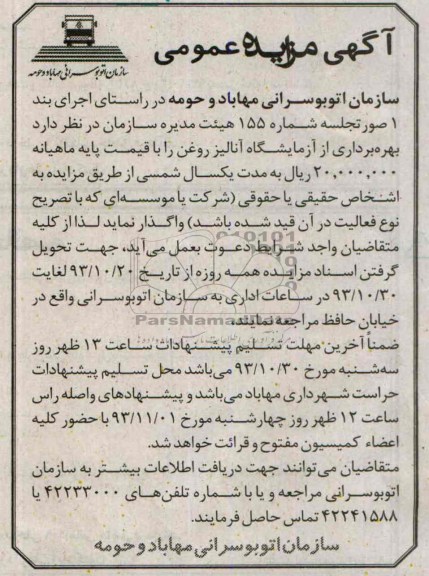 آگهی مزایده عمومی
سازمان اتوبوسرانی مهاباد و حومه
سازمان اتوبوسرانی مهاباد و حومه در راستای اجرای بند
۱ صورتجلسه شماره ۱۵۵ هیئت مدیره سازمان در نظر دارد
بهره‌برداری از آزمایشگاه آنالیز روغن را با قیمت پایه ماهیانه
۲۰,۰۰۰,۰۰۰ ریال به مدت یکسال شمسی از طریق مزایده به
اشخاص حقیقی یا حقوقی (شرکت یا موسسه‌ای که با تصریح
نوع فعالیت در آن قید شده باشد) واگذار نماید لذا از کلیه
متقاضیان واجد شرایط دعوت بعمل می‌آید، جهت تحویل
گرفتن اسناد مزایده همه روزه از تاریخ ۹۳/۱۰/۲۰ لغایت
۹۳/۱۰/۳۰ در ساعات اداری به سازمان اتوبوسرانی واقع در
خیابان حافظ مراجعه نمایند.
ParsNamadData
ضمناً آخرین مهلت تسلیم پیشنهادات ساعت ۱۳ ظهر روز
سه‌شنبه مورخ ۹۳/۱۰/۳۰ می‌باشد محل تسلیم پیشنهادات
حراست شهرداری مهاباد می‌باشد و پیشنهادهای واصله راس
ساعت ۱۲ ظهر روز چهارشنبه مورخ ۹۳/۱۱/۰۱ با حضور کلیه
اعضاء کمیسیون مفتوح و قرائت خواهد شد.
متقاضیان می‌توانند جهت دریافت اطلاعات بیشتر به سازمان
اتوبوسرانی مراجعه و یا با شماره تلفن‌های ۴۲۲۳۳۰۰۰ یا
۴۲۲۴۱۵۸۸ تماس حاصل فرمایند.
سازمان اتوبوسرانی مهاباد و حومه